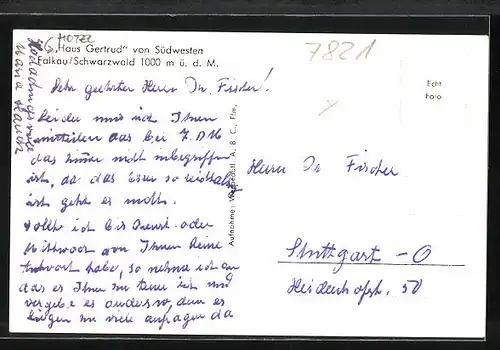 HOTEL
„Haus Gertrud" von Südwesten
Falkau/Schwarzwald 1000 m ü. d. M.
7821
Echt
Foto
Sehr geehrter Herr Dr. Fischer!
Leider muss ich Ihnen
mitteilen das bei 7.DM
das Zimmer nicht inbegriffen
ist, da das Essen so reichhaltig
ist geht es nicht.
Sollte ich bis Dienst. oder
Mittwoch von Ihnen keine
Antwort habe, so nehme ich an
das es Ihnen zu teuer ist und
vergebe es anders, denn es
liegen mir viele anfragen da
Hochachtungsvoll
Maria
Aufnahme:
Herrn Dr Fischer
Stuttgart - O
50